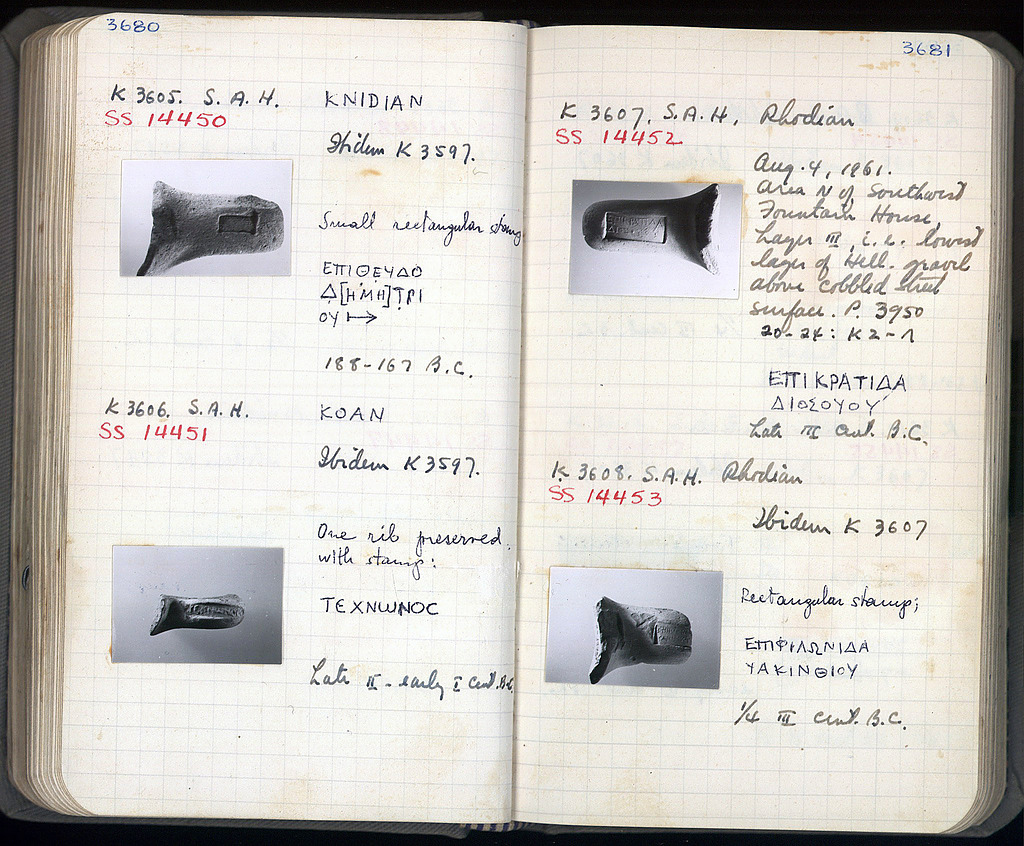 3680
K 3605. S.A.H. KNIDIAN
SS 14450
Ibidem K 3597.
Small rectangular stamp
ΕΠΙΘΕΥΔΟ
Δ[ΗΜΗ]ΤΡΙ
ΟΥ ↦
188-167 B.C.
K 3606. S.A.H. KOAN
SS 14451
Ibidem K 3597.
One rib preserved,
with stamp:
ΤΕΧΝΩΝΟC
Late II - early I cent. B.C.
3681
K 3607. S.A.H. Rhodian
SS 14452
Aug. 4, 1961.
area N of Southwest
Fountain House,
Layer III, i.e. lowest
layer of Hell. gravel
above cobbled street
surface. P. 3950
20-24: K 2-Λ
ΕΠΙΚΡΑΤΙΔΑ
ΔΙΟΣΟΥΟΥ
Late III cent. B.C.
K 3608. S.A.H. Rhodian
SS 14453
Ibidem K 3607
Rectangular stamp;
ΕΠΙΦΙΛΩΝΙΔΑ
ΥΑΚΙΝΘΙΟΥ
1/4 III cent. B.C.